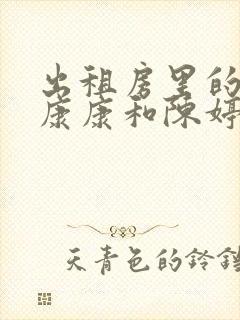 出租房里的
康康和陈婷
天青色的铃铛